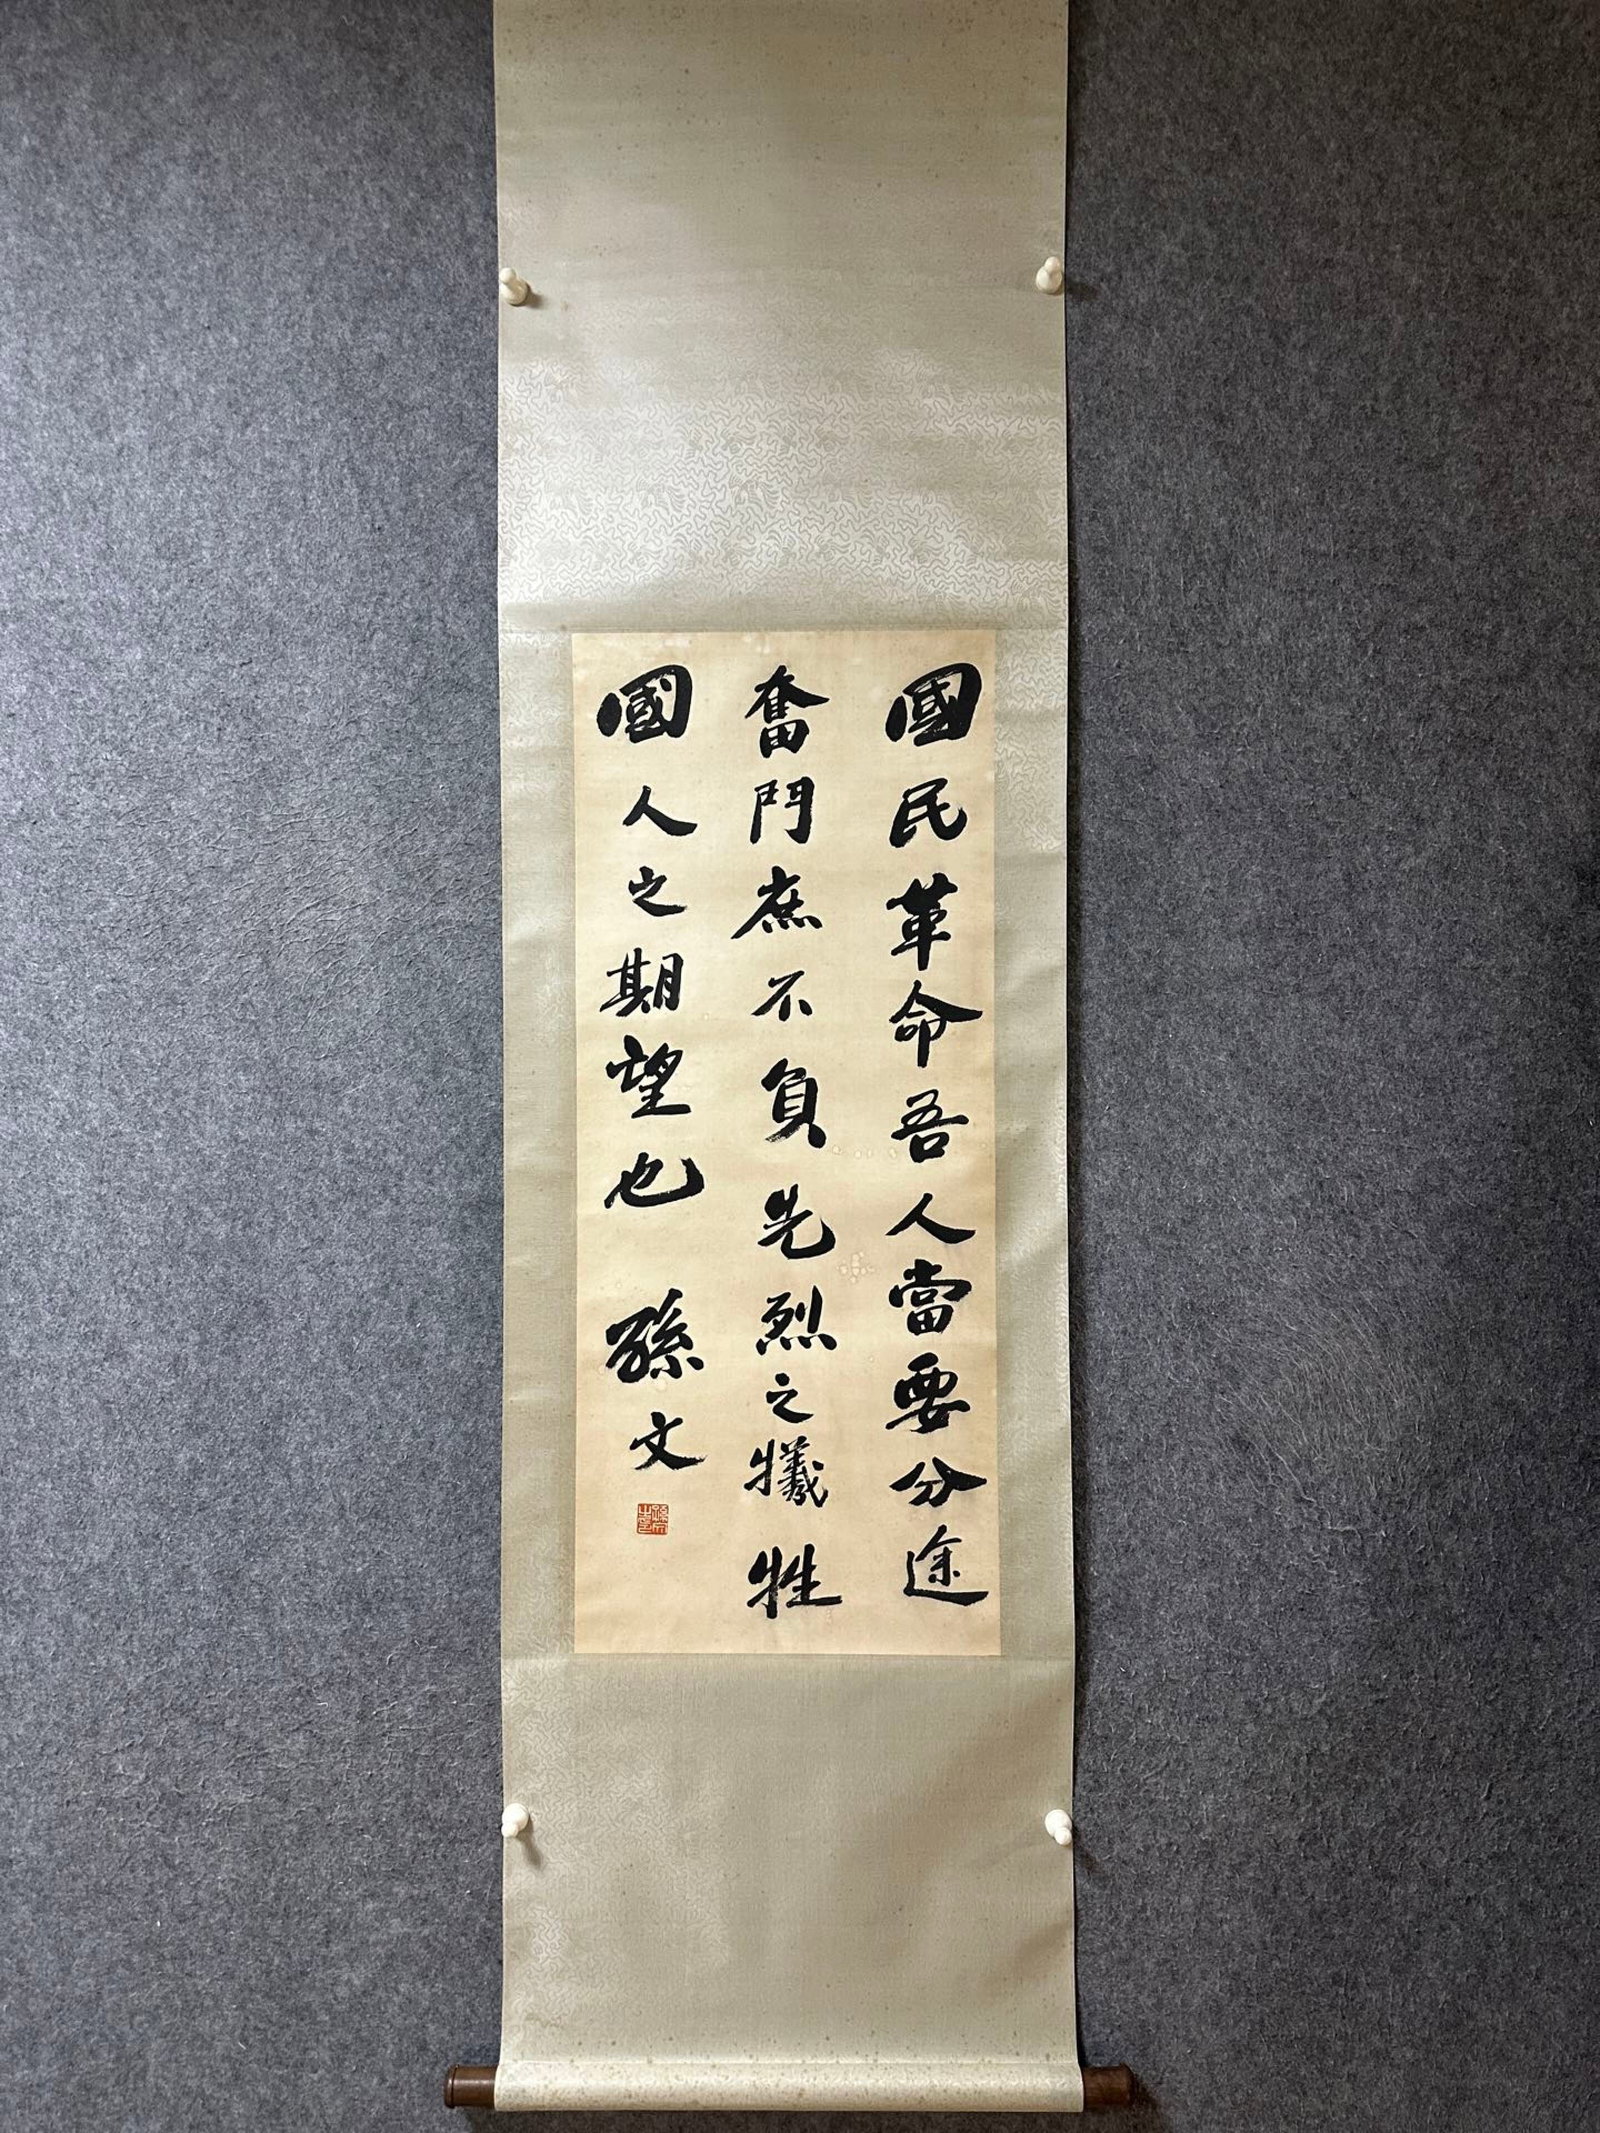 國民革命吾人當要分途
奮鬥庶不負先烈之犧牲
國人之期望也 孫文
孫文之印